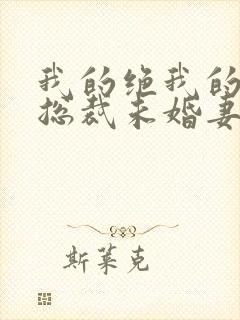 我的绝我的
总裁未婚妻
斯莱克